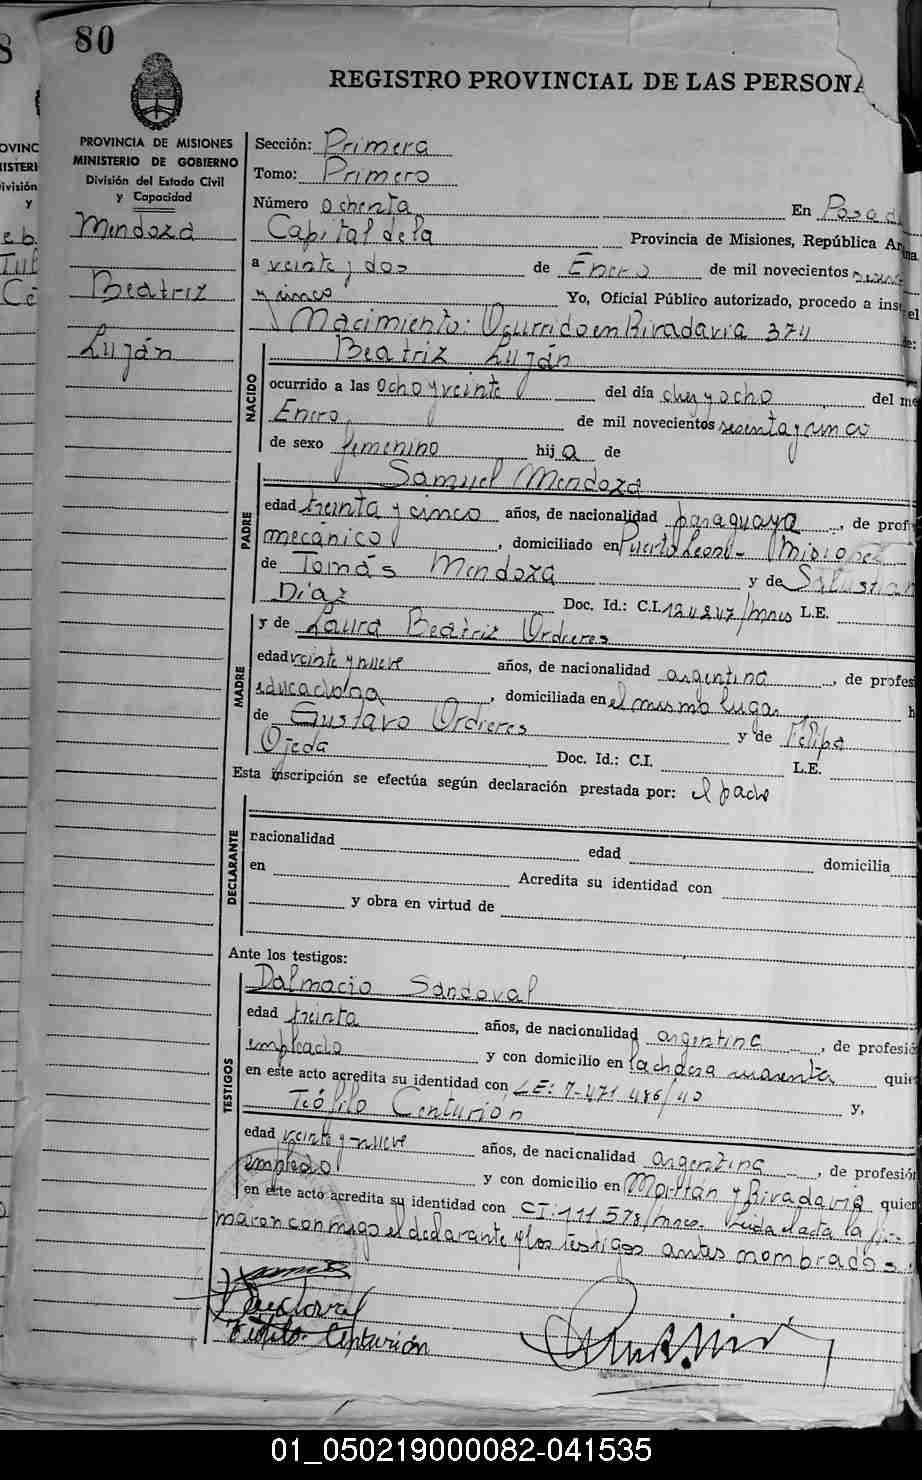 80
REGISTRO PROVINCIAL DE LAS PERSONA
PROVINCIA DE MISIONES
MINISTERIO DE GOBIERNO
División del Estado Civil
y Capacidad
Mendoza
Beatriz
Luján
Sección: Primera
Tomo: Primero
Número ochenta En Posad
Capital de la Provincia de Misiones, República Ar
a veinte y dos de Enero de mil novecientos
y cinco Yo, Oficial Público autorizado, procedo a ins el
Nacimiento: Ocurrido en Rivadavia 374 de:
NACIDO
Beatriz Luján
ocurrido a las ocho y veinte del día diez y ocho del me
Enero de mil novecientos sesenta y cinco
de sexo femenino hij a de
PADRE
Samuel Mendoza
edad treinta y cinco años, de nacionalidad paraguaya, de prof
mecánico, domiciliado en Puerto Leoni - Misiones
de Tomás Mendoza y de Salustian
Díaz Doc. Id.: C.I. 124247/mnes L.E.
MADRE
y de Laura Beatriz Ordieres
edad veinte y nueve años, de nacionalidad argentina, de profes
educadora, domiciliada en el mismo lugar h
de Gustavo Ordieres y de Felipa
Ojeda Doc. Id.: C.I. L.E.
Esta inscripción se efectúa según declaración prestada por: el padre
DECLARANTE
nacionalidad edad domicilia
en Acredita su identidad con
y obra en virtud de
Ante los testigos:
TESTIGOS
Dalmacio Sandoval
edad treinta años, de nacionalidad argentina, de profesió
empleado y con domicilio en la chacra cuarenta quie
en este acto acredita su identidad con LE: 7-471.486/40 y,
Teófilo Centurión
edad veinte y nueve años, de nacionalidad argentina, de profesión
empleado y con domicilio en Martín y Rivadavia quien
en este acto acredita su identidad con CI: 111.578/mnes. Leida el acta la fir
maron conmigo el declarante y los testigos antes nombrados.
Sandoval
Teófilo Centurión
01_050219000082-041535